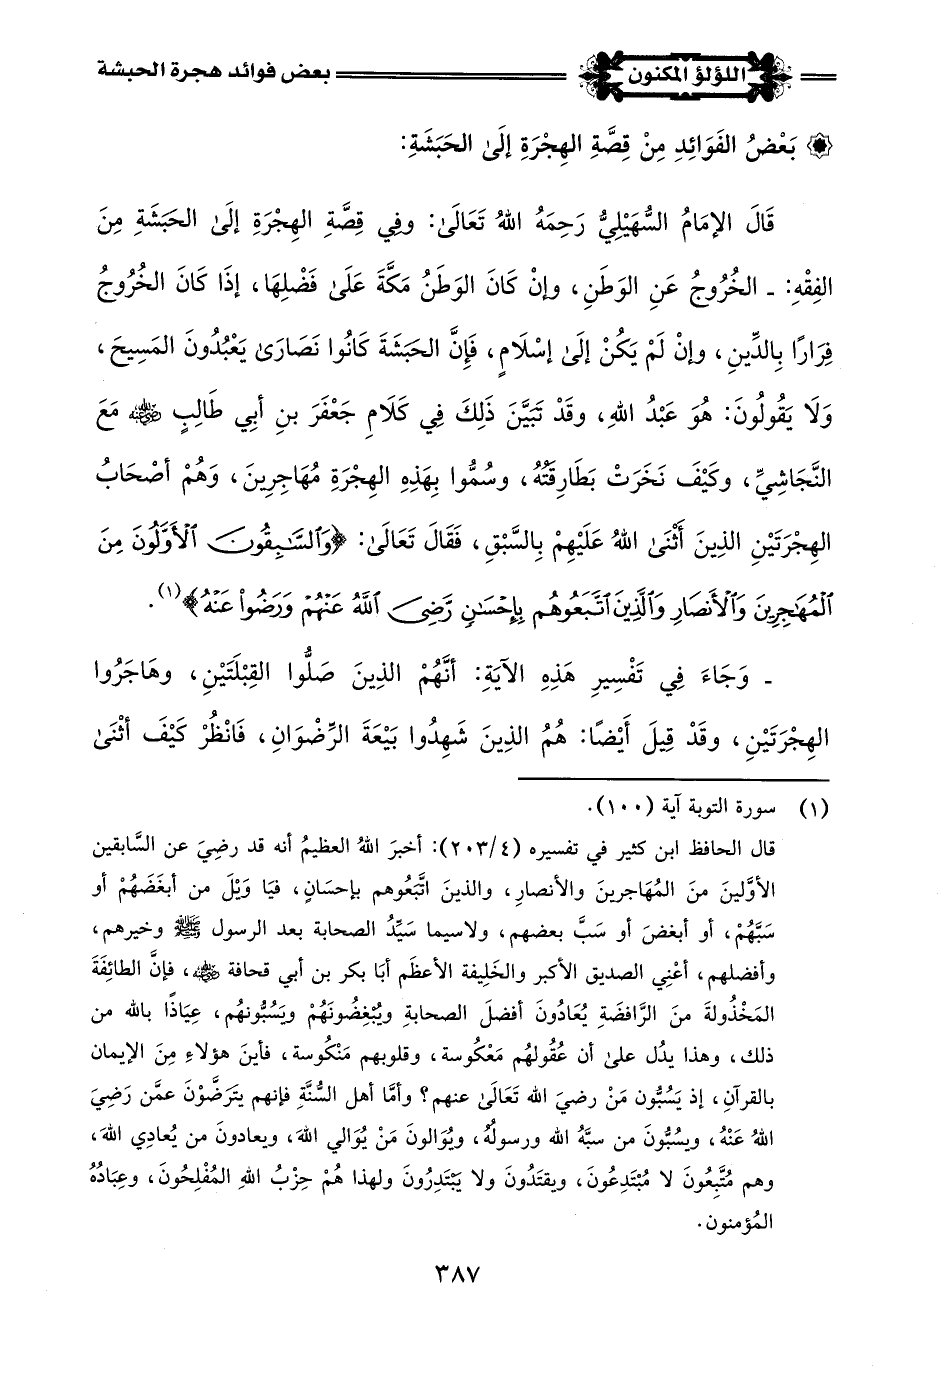 اللؤلؤ المكنون بعض فوائد هجرة الحبشة
بَعْضُ الفَوَائِدِ مِنْ قِصَّةِ الهِجْرَةِ إِلَىٰ الحَبَشَةِ:
قَالَ الإِمَامُ السُّهَيْلِيُّ رَحِمَهُ اللهُ تَعَالَىٰ: وفِي قِصَّةِ الهِجْرَةِ إِلَىٰ الحَبَشَةِ مِنَ
الفِقْهِ: ـ الخُرُوجُ عَنِ الوَطَنِ، وإنْ كَانَ الوَطَنُ مَكَّةَ عَلَىٰ فَضْلِهَا، إذَا كَانَ الخُرُوجُ
فِرَارًا بِالدِّينِ، وإنْ لَمْ يَكُنْ إِلَىٰ إسْلَامٍ، فَإِنَّ الحَبَشَةَ كَانُوا نَصَارَىٰ يَعْبُدُونَ المَسِيحَ،
وَلَا يَقُولُونَ: هُوَ عَبْدُ اللهِ، وقَدْ تَبَيَّنَ ذَلِكَ فِي كَلَامِ جَعْفَرَ بنِ أبِي طَالِبٍ رضي الله عنه مَعَ
النَّجَاشِيِّ، وكَيْفَ نَخَرَتْ بَطَارِقَتُهُ، وسُمُّوا بِهَذِهِ الهِجْرَةِ مُهَاجِرِينَ، وَهُمْ أصْحَابُ
الهِجْرَتَيْنِ الذِينَ أثْنَىٰ اللهُ عَلَيْهِمْ بِالسَّبْقِ، فَقَالَ تَعَالَىٰ: ﴿وَٱلسَّٰبِقُونَ ٱلْأَوَّلُونَ مِنَ
ٱلْمُهَٰجِرِينَ وَٱلْأَنصَارِ وَٱلَّذِينَ ٱتَّبَعُوهُم بِإِحْسَٰنٍ رَّضِيَ ٱللَّهُ عَنْهُمْ وَرَضُوا۟ عَنْهُ﴾(١).
ـ وَجَاءَ فِي تَفْسِيرِ هَذِهِ الآيَةِ: أَنَّهُمْ الذِينَ صَلُّوا القِبْلَتَيْنِ، وهَاجَرُوا
الهِجْرَتَيْنِ، وقَدْ قِيلَ أَيْضًا: هُمُ الذِينَ شَهِدُوا بَيْعَةَ الرِّضْوَانِ، فَانْظُرْ كَيْفَ أثْنَىٰ
(١) سورة التوبة آية (١٠٠).
قال الحافظ ابن كثير في تفسيره (٢٠٣/٤): أخبرَ اللهُ العظيمُ أنه قد رضِيَ عن السَّابقين
الأوَّلينَ منَ المُهَاجرينَ والأنصارِ، والذينَ اتَّبَعُوهم بإحسَانٍ، فيَا وَيْلَ من أبغَضَهُمْ أو
سَبَّهُمْ، أو أبغضَ أو سَبَّ بعضهم، ولاسيما سَيِّدُ الصحابة بعد الرسول ﷺ وخيرهم،
وأفضلهم، أعْنِي الصديق الأكبر والخَلِيفة الأعظَم أبَا بكر بن أبي قحافة رضي الله عنه، فإنَّ الطائِفَةَ
المَخْذُولةَ منَ الرَّافضَةِ يُعَادُونَ أفضلَ الصحابةِ ويُبْغِضُونَهُمْ ويَسُبُّونهُم، عِيَاذًا بالله من
ذلك، وهذا يدُل علىٰ أن عُقُولهُم مَعْكُوسة، وقلوبهم مَنْكُوسة، فأينَ هؤلاءِ مِنَ الإيمان
بالقرآنِ، إذ يَسُبُّون مَنْ رضيَ الله تَعَالَىٰ عنهم؟ وأمَّا أهل السُّنَّةِ فإنهم يتَرَضَّوْنَ عمَّن رَضِيَ
اللهُ عَنْهُ، ويسُبُّونَ من سبَّهُ الله ورسولُهُ، ويُوَالونَ مَنْ يُوَالي اللهَ، ويعادونَ من يُعادِي اللهَ،
وهم مُتَّبِعُونَ لا مُبْتَدِعُونَ، ويقتَدُونَ ولا يَبْتَدِرُونَ ولهذا هُمْ حِزْبُ اللهِ المُفْلِحُونَ، وعِبَادُهُ
المُؤمنون.
٣٨٧